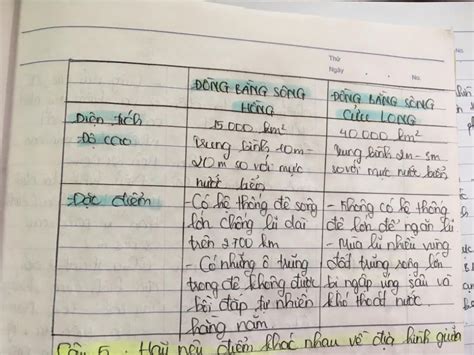 Thứ
Ngày . . No.
ĐỒNG BẰNG SÔNG HỒNG
ĐỒNG BẰNG SÔNG CỬU LONG
Diện tích
15.000 km²
40.000 km²
Độ cao
trung bình 10m-
20m so với mực
nước biển
trung bình 2m - 5m
so với mực nước biển
Đặc điểm
- Có hệ thống đê sông
lớn chống lũ dài
trên 2700 km
- Có những ô trũng
trong đê không được
bồi đáp tự nhiên
hàng năm.
- Không có hệ thống
đê lớn để ngăn lũ
- Mùa lũ nhiều vùng
đất trũng rộng lớn
bị ngập úng sâu và
khó thoát nước.
Câu 5: Hãy nêu điểm khác nhau về địa hình giữa